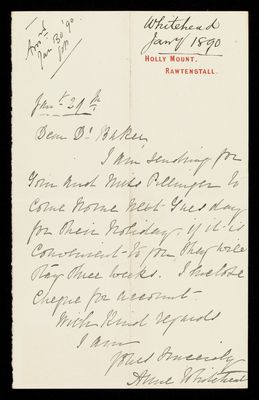 Ansd
Jan 30 '90
Whitehead
Jany 1890
HOLLY MOUNT.
RAWTENSTALL.
Jany 29th
Dear Dr Baker
I am sending for
Miss Pillinger to
come home next Tuesday
for their Holiday, if it is
convenient to you. They will
stay three weeks. I enclose
cheque for account.
With kind regards
I am
Yours sincerely
Anne Whitehead